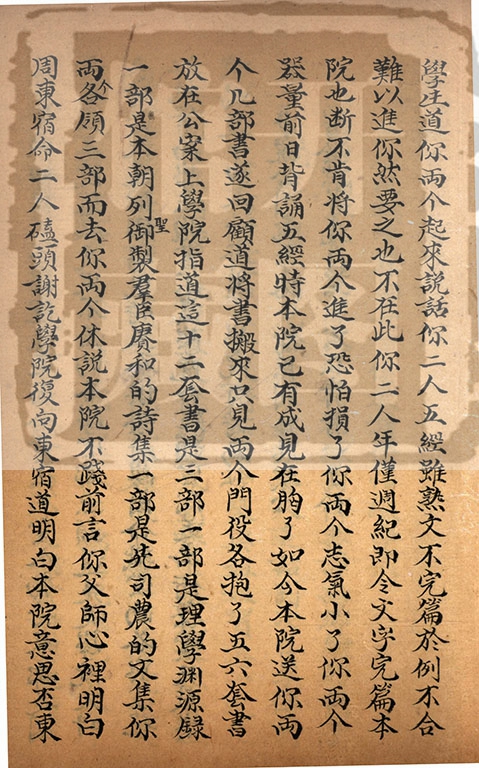 學生道你兩个起來説話你二人五經雖熟文不完篇於例不合
難以進你然要之也不在此你二人年僅週紀即令文字完篇本
院也断不肯將你兩个進了恐怕損了你兩个志氣小了你兩个
器量前日背誦五經特本院已有成見在胸了如今本院送你兩
个几部書遂回顧道將書搬來只見兩个門役各抱了五六套書
放在公案上學院指道這十二套書是三部一部是理學渊源録
一部是本朝列聖御製羣臣賡和的詩集一部是先司農的文集你
兩个各領三部而去你兩个休説本院不踐前言你父師心裡明白
周東宿命二人磕頭謝訖學院復向東宿道明白本院意思否東